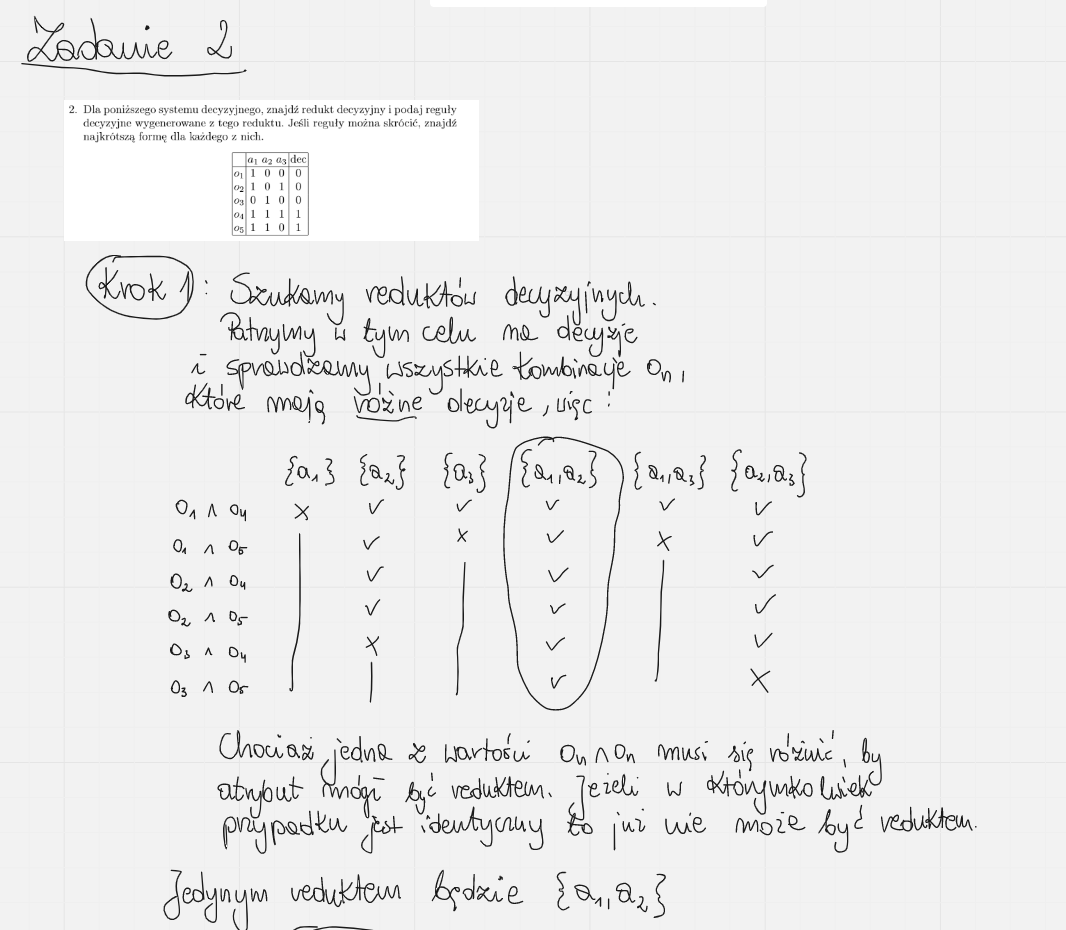 Zadanie 2
2. Dla poniższego systemu decyzyjnego, znajdź redukt decyzyjny i podaj reguły
decyzyjne wygenerowane z tego reduktu. Jeśli reguły można skrócić, znajdź
najkrótszą formę dla każdego z nich.
a₁ a₂ a₃ dec
o₁ 1 0 0 0
o₂ 1 0 1 0
o₃ 0 1 0 0
o₄ 1 1 1 1
o₅ 1 1 0 1
Krok 1: Szukamy reduktów decyzyjnych.
Patrzymy w tym celu na decyzje
i sprawdzamy wszystkie kombinacje oₙ,
które mają różne decyzje, więc:
{a₁} {a₂} {a₃} {a₁,a₂} {a₁,a₃} {a₂,a₃}
o₁ ∧ o₄ × ✓ ✓ ✓ ✓ ✓
o₁ ∧ o₅ ✓ × ✓ × ✓
o₂ ∧ o₄ ✓ ✓ ✓
o₂ ∧ o₅ ✓ ✓ ✓
o₃ ∧ o₄ × ✓ ✓
o₃ ∧ o₅ ✓ ×
Chociaż jedna z wartości oₙ∧oₙ musi się różnić, by
atrybut mógł być reduktem. Jeżeli w którymkolwiek
przypadku jest identyczny to już nie może być reduktem.
Jedynym reduktem będzie {a₁,a₂}